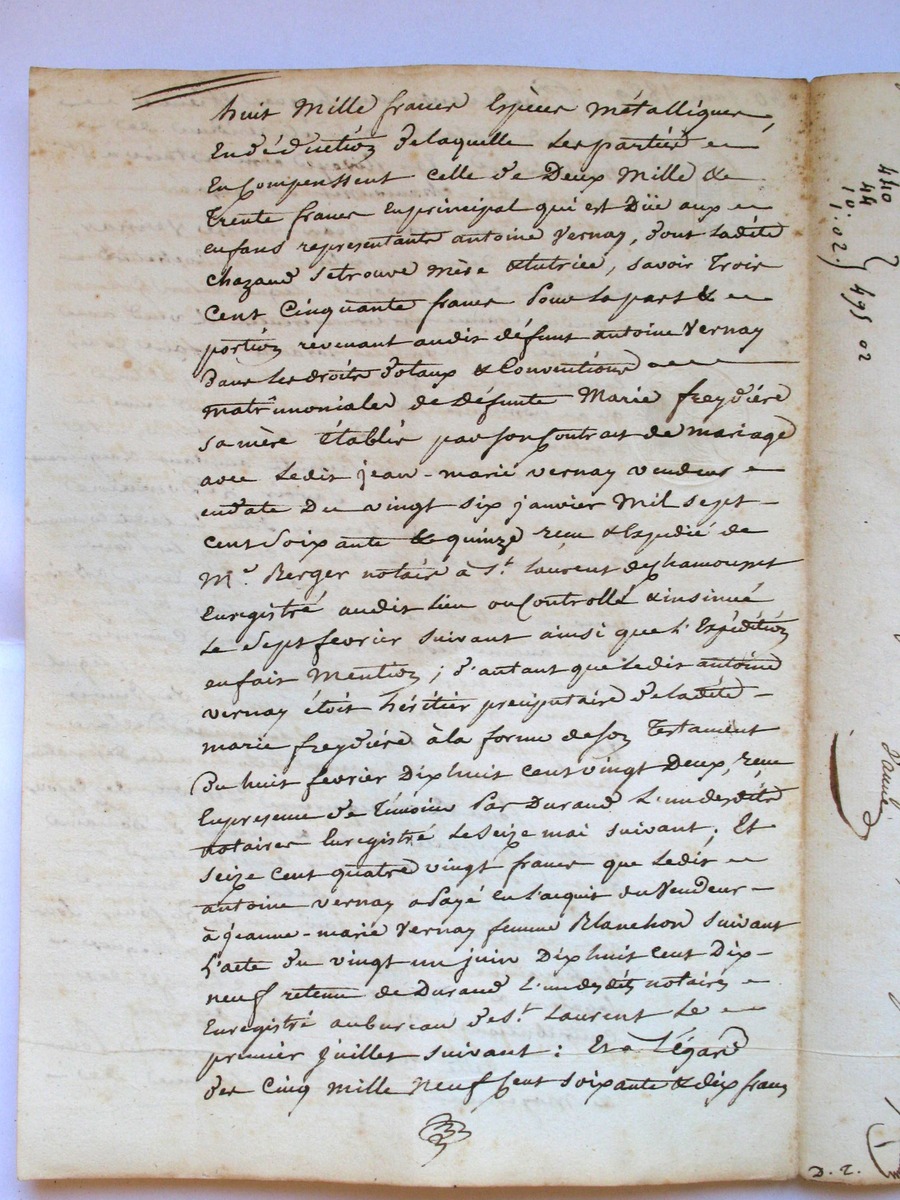 huit mille francs Espèces métalliques,
En déduction de laquelle les parties
En Compenssent celle de Deux mille &
trente francs en principal qui est Düe aux
enfans representants antoine Vernay, dont ladite
chazaud se trouve mère & tutrice, savoir trois
cent cinquante francs pour la part &
portion revenant audit défunt antoine Vernay
dans les droits dotaux & Conventions
matrimoniales de défunte Marie freydière
sa mère établis par son Contrat de mariage
avec ledit jean-marie vernay vendeur
en date Du vingt six janvier Mil sept
cent soixante & quinze reçu & Expedié de
Me. Berger notaire à St. Laurent de Chamousset
Enregistré audit lieu ou Controllé & insinué
Le sept fevrier suivant ainsi que l'Expédition
en fait Mention; d'autant que ledit antoine
vernay étoit héritier precipuitaire de ladite
marie freydière à la forme de son Testament
Du huit fevrier Dixhuit cent vingt Deux, reçu
En presence de témoins Par Durand L'un desdits
notaires Enregistré le seize mai suivant; Et
seize cent quatre vingt francs que ledit
antoine vernay a Payé en l'acquit du Vendeur
à jeanne-marie Vernay femme Blanchon suivant
L'acte du vingt un juin Dixhuit cent Dix
neuf retenu de Durand L'un desdits notaires
Enregistré au bureau de St. Laurent Le
premier juillet suivant: Et à L'égard
des cinq mille Neuf Cent soixante & dix francs
440
44
10.
1.02.
495 02
D. 2.